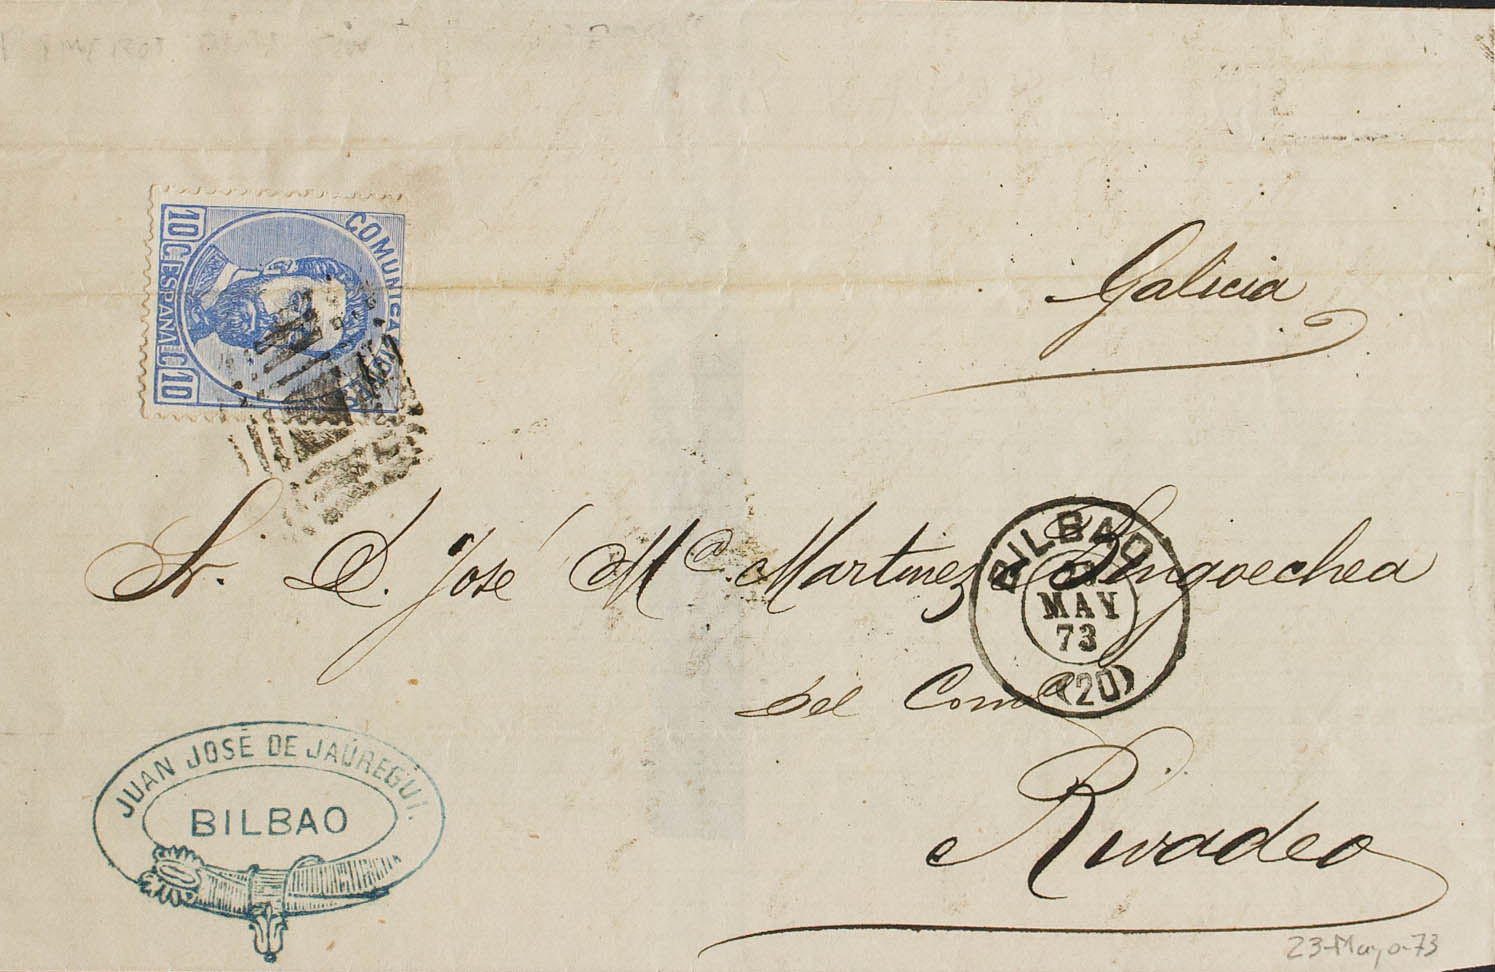 COMUNICACIONES
10 C. ESPAÑA C. 10
Galicia
Sr. D. José Mª. Martinez Bengoechea
BILBAO
MAY
73
(20)
del Com
Rivadeo
JUAN JOSÉ DE JAÚREGUI.
BILBAO
23-Mayo-73